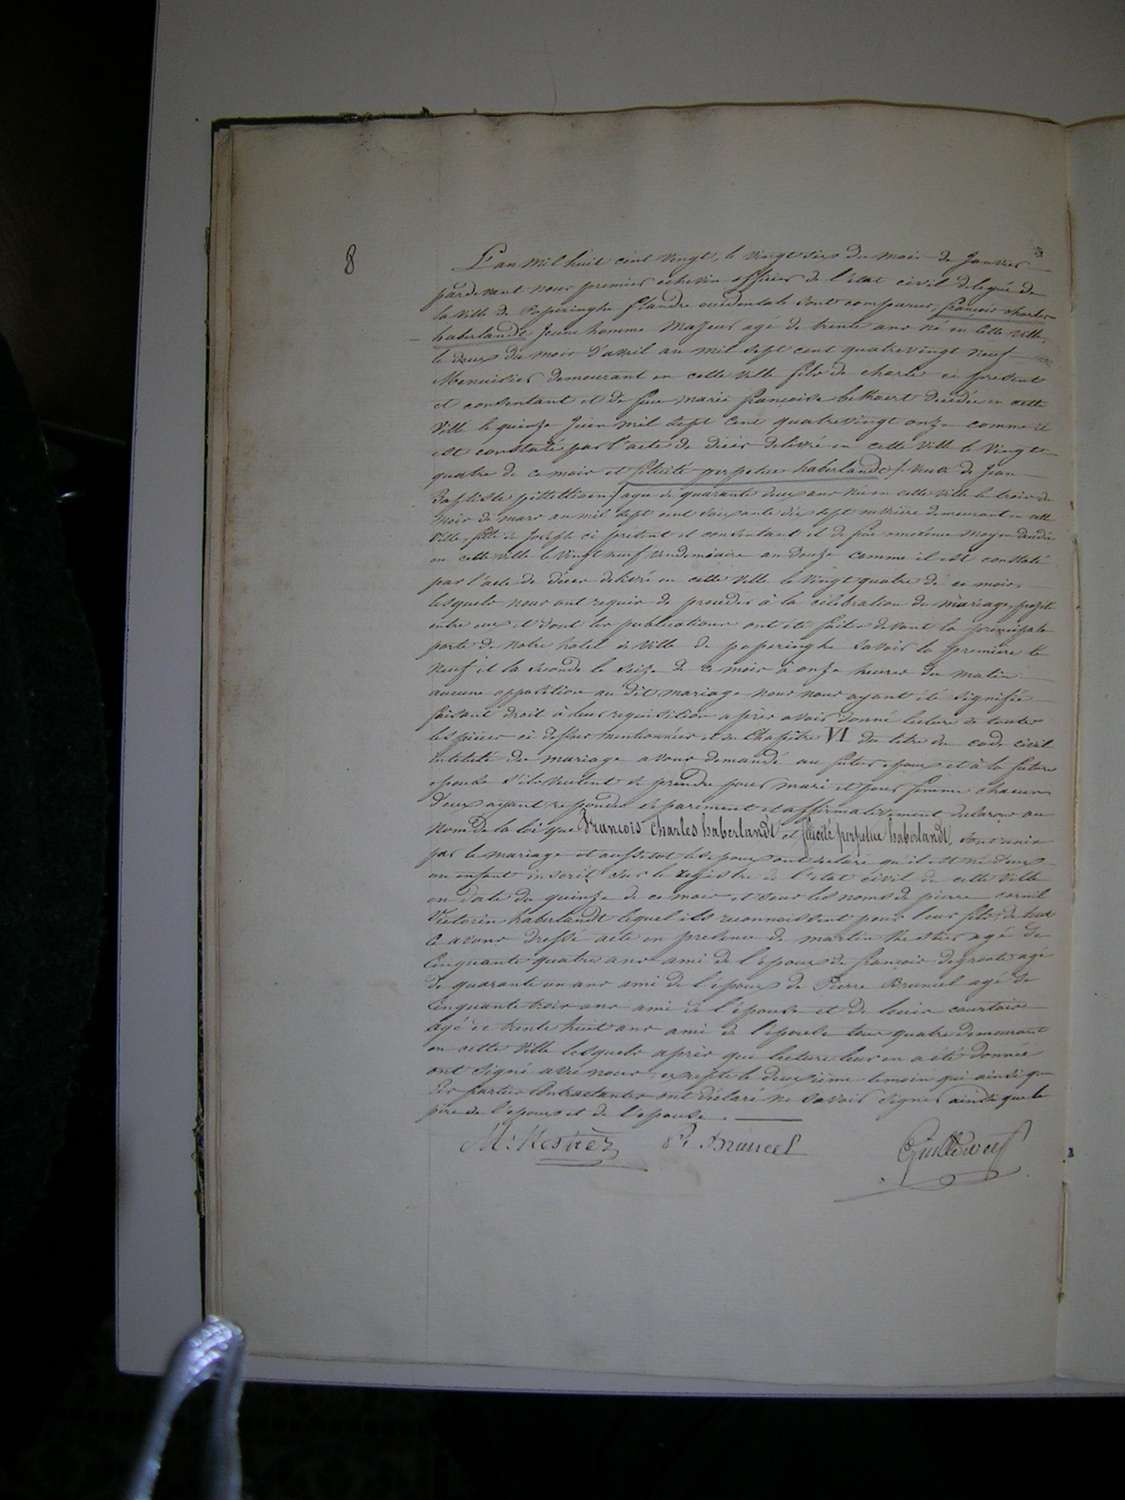 8
L'an mil huit cent vingt, le vingt six du mois de Janvier
pardevant nous premier echevin officier de l'etat civil delegué de
la ville de Poperinghe flandre occidentale sont comparus françois charles
haberlandt jeune homme majeur agé de trente ans né en cette ville
le deux du mois d'avril an mil sept cent quatrevingt neuf
Menuisier demeurant en cette ville fils de charles ci present
et consentant et de feue marie françoise decedée en cette
ville le quinze Juin mil sept cent quatrevingt onze comme il
est constaté par l'acte de deces delivré en cette ville le vingt
quatre de ce mois et felicité perpetue haberlandt veuve de Jean
Baptiste agée de quarante deux ans née en cette ville le trois du
mois de mars an mil sept cent soixante dix sept demeurant en cette
ville fille de Joseph ci present et consentant et de feue decedée
en cette ville le vingt neuf vendemiaire an douze comme il est constaté
par l'acte de deces delivré en cette ville le vingt quatre de ce mois.
lesquels nous ont requis de proceder à la celebration du mariage projeté
entre eux et dont les publications ont été faites devant la principale
porte de notre hotel de ville de poperinghe savoir la premiere le
neuf et la seconde le seize de ce mois à onze heures du matin
aucune opposition au dit mariage nous ayant été signifiée
faisant droit à leur requisition apres avoir donné lecture de toutes
les pieces ci dessus mentionnées et du Chapitre VI du titre du code civil
intitulé du mariage avons demandé au futur epoux et à la future
epouse s'ils veulent se prendre pour mari et pour femme chacun
d'eux ayant repondu separement et affirmativement declarons au
nom de la loi que François Charles haberlandt et felicité perpetue haberlandt sont unis
par le mariage et aussitot les epoux ont declaré qu'il est né d'eux
un enfant inscrit sur le registre de l'etat civil de cette ville
en date du quinze de ce mois et sous les noms de pierre
Victorin haberlandt lequel ils reconnoissent pour leur fils, de tout
ce avons dressé acte en presence de martin agé de
cinquante quatre ans ami de l'epoux de françois agé
de quarante un ans ami de l'epoux de Pierre Bruneel agé de
cinquante trois ans ami de l'épouse et de louis
agé de trente huit ans ami de l'epouse tous quatre demeurant
en cette ville lesquels apres que lecture leur en a été donnée
ont signé avec nous excepté le deuxieme temoin qui ainsi que
les parties contractantes ont déclaré ne savoir signer ainsi que le
père de l'epoux et de l'epouse.